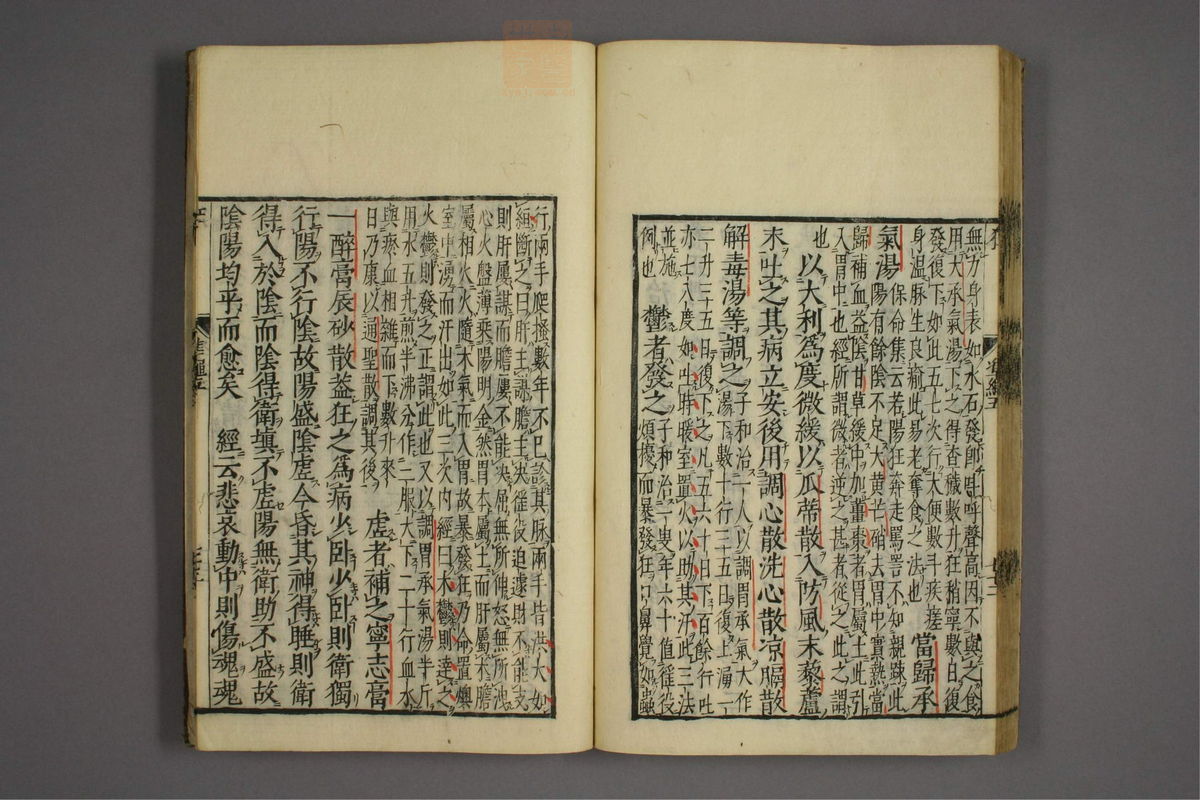 無力身表如水石發師叫呼聲高因不與之食
用大承氣湯下之得查穢數升狂稍寧數日復
發復下如此五七次行大便數斗疾瘥
身温脉生良愈此易老奪食之法也
當歸承
氣湯
保命集云若陽狂奔走罵詈不知親踈此
陽有餘陰不足大黄芒硝去胃中實熱當
歸補血益陰甘草緩中加薑棗者胃屬土此引
入胃中也經所謂微者逆之甚者從之此之謂
也
以大利爲度微緩以瓜蒂散入防風末藜蘆
末吐之其病立安後用調心散洗心散凉膈散
解毒湯等調之
子和治一人以調胃承氣大作
湯下數十行三五日復上涌一
二升三五日復下之凡五六十日下百餘行吐
亦七八度如吐時暖室置火以助其汗此三法
並施
例也
鬱者發之
子和治一叟年六十值徭役
煩擾而暴發狂口鼻覺如蟲
行兩手爬搔數年不已診其脉兩手皆洪大如
緪斷之曰肝主謀膽主决徭役迫遽財不能支
則肝屢謀而膽屢不能决屈無所伸怒無所洩
心火盤薄乘陽明金然胃本屬土而肝屬木膽
屬相火火隨木氣而入胃故暴發狂乃命置燠
室中涌而汗出如此三次内經曰木鬱則達之
火鬱則發之正謂此也又以調胃承氣湯半斤
用水五升煎半沸分作二服大下二十行血水
與瘀血相雜而下數升來
日乃康以通聖散調其後
虚者補之寧志膏
一醉膏辰砂散益狂之爲病少卧少卧則衛獨
行陽不行陰故陽盛陰虚令昏其神得睡則衛
得入於陰而陰得衛塡不虚陽無衛助不盛故
陰陽均平而愈矣　經云悲哀動中則傷魂魂